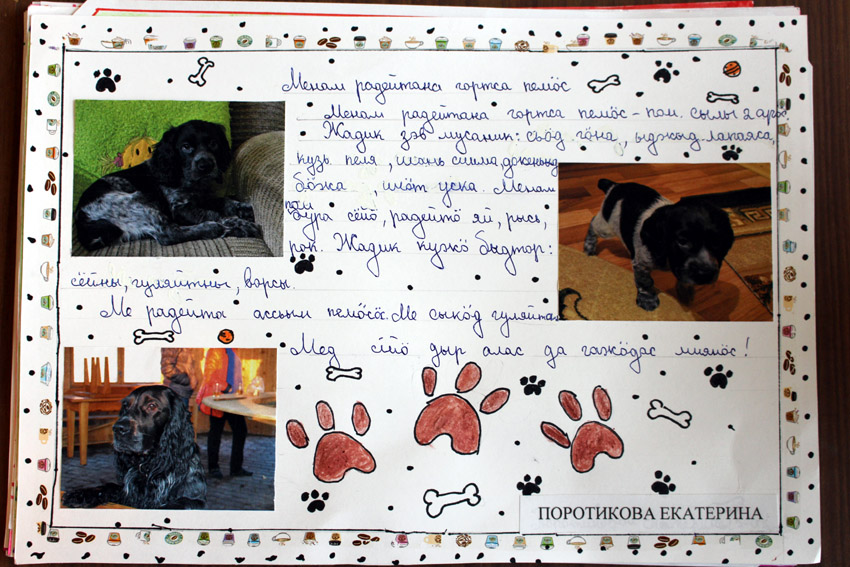 Менам радейтана гортса пемӧс
Менам радейтана гортса пемӧс - пон. Сылы 2 арӧс.
Жадик зэв мусаник: сьӧд гӧна, ыджыд лапаяса,
кузь пеля, шань синма, дженьыд
бӧжа, шӧт уска. Менам
пон
бура сёйӧ, радейтӧ яй, рысь,
рок. Жадик кужӧ быдтор:
сёйны, гуляйтны, ворсны.
Ме радейта ассьым пемӧсӧс. Ме сыкӧд гуляйта.
Мед сійӧ дыр олас да гажӧдас миянӧс!
ПОРОТИКОВА ЕКАТЕРИНА